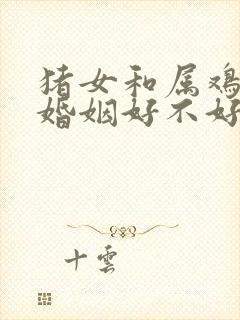 猪女和属鸡
婚姻好不好
十云